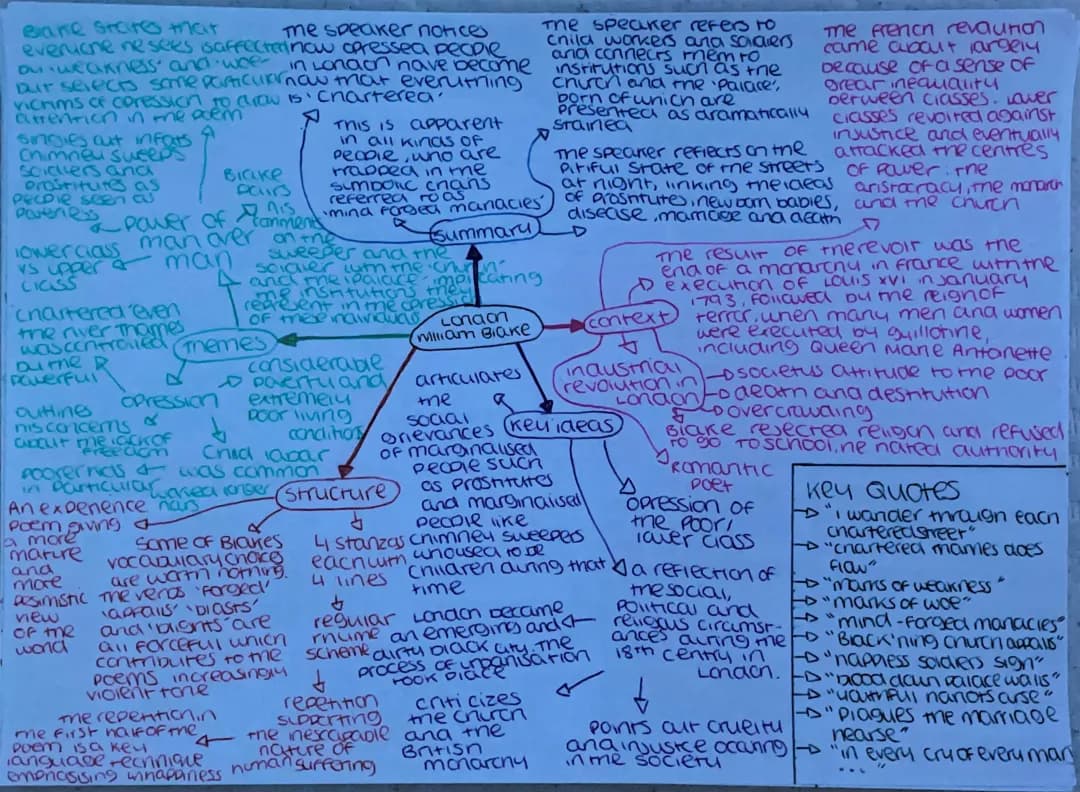 Blake states that
everyone he sees is affected
by 'weakness' and 'woe'
but selects some particular
victims of opression to draw
attention in the poem
singles out infants
chimney sweeps
soldiers and
prostitutes as
people seen as
power of
man over
man
lower class
vs upper
class
Blake
pairs
his
comments
on the
sweeper and the
soldier with the 'church'
and the 'palace' implicating
the institutions they
represent in the opression
of these individuals
Themes
chartered 'even
the river Thames
was controlled
by the
powerful
opression
outlines
his concerns
about the lack of
freedom
poorer kids
in particular
considerable
poverty and
extremely
poor living
conditions
child labour
was common
worked longer
hours
The speaker notices
how opressed people
in London have become
now that everything
is 'chartered'
This is apparent
in all kinds of
people, who are
trapped in the
symbolic chains
referred to as
'mind forged manacles'
The speaker refers to
child workers and soldiers
and connects them to
institutions such as the
church and the 'Palace',
both of which are
presented as dramatically
stained
The speaker reflects on the
pitiful state of the streets
at night, linking the ideas
of prostitutes, newborn babies,
disease, marriage and death
summary
London
William Blake
The french revolution
came about largely
because of a sense of
great inequality
between classes. Lower
classes revolted against
injustice and eventually
attacked the centres
of power: the
aristocracy, the monarch
and the church
context
The result of the revolt was the
end of a monarchy in france with the
execution of Louis XVI in january
1793, followed by the reign of
terror, when many men and women
were executed by guillotine,
including Queen Marie Antonette
industrial
revolution in
London
societys attitude to the poor
death and destitution
overcrowding
Blake rejected religon and refused
to go to school, he hated authority
Romantic
poet
Key ideas
articulates
the
social
grievances
of marginalised
people such
as prostitutes
and marginalised
people like
chimney sweepers
who used to be
children during that
time
opression of
the poor/
lower class
a reflection of
the social,
political and
religous circumst-
ances during the
18th centry in
London.
London became
an emerging and
dirty black city, the
process of urbanisation
took place
criticizes
the church
and the
British
monarchy
points out cruelty
and injustice occuring
in the society
structure
An experience
poem giving
a more
mature
and
more
pesimistic
view
of the
world
some of Blakes
vocabulary choice
are worth noting.
The verbs 'forged'
'appalls' 'blasts'
and 'blights' are
all forceful which
contributes to the
poems increasingly
violent tone
4 stanzas
each with
4 lines
regular
rhyme
scheme
repetition
supporting
the inescapable
nature of
human suffering
The repetition in
the first half of the
poem is a key
language technique
emphasising unhappiness
Key Quotes
"I wander through each
chartered street"
"chartered thames does
flow"
"marks of weakness"
"marks of woe"
"mind-forged manacles"
"Black'ning church appalls"
"hapless soldiers sigh"
"blood down palace walls"
"youthful harlots curse"
"Plagues the marriage
hearse"
"in every cry of every man
..."